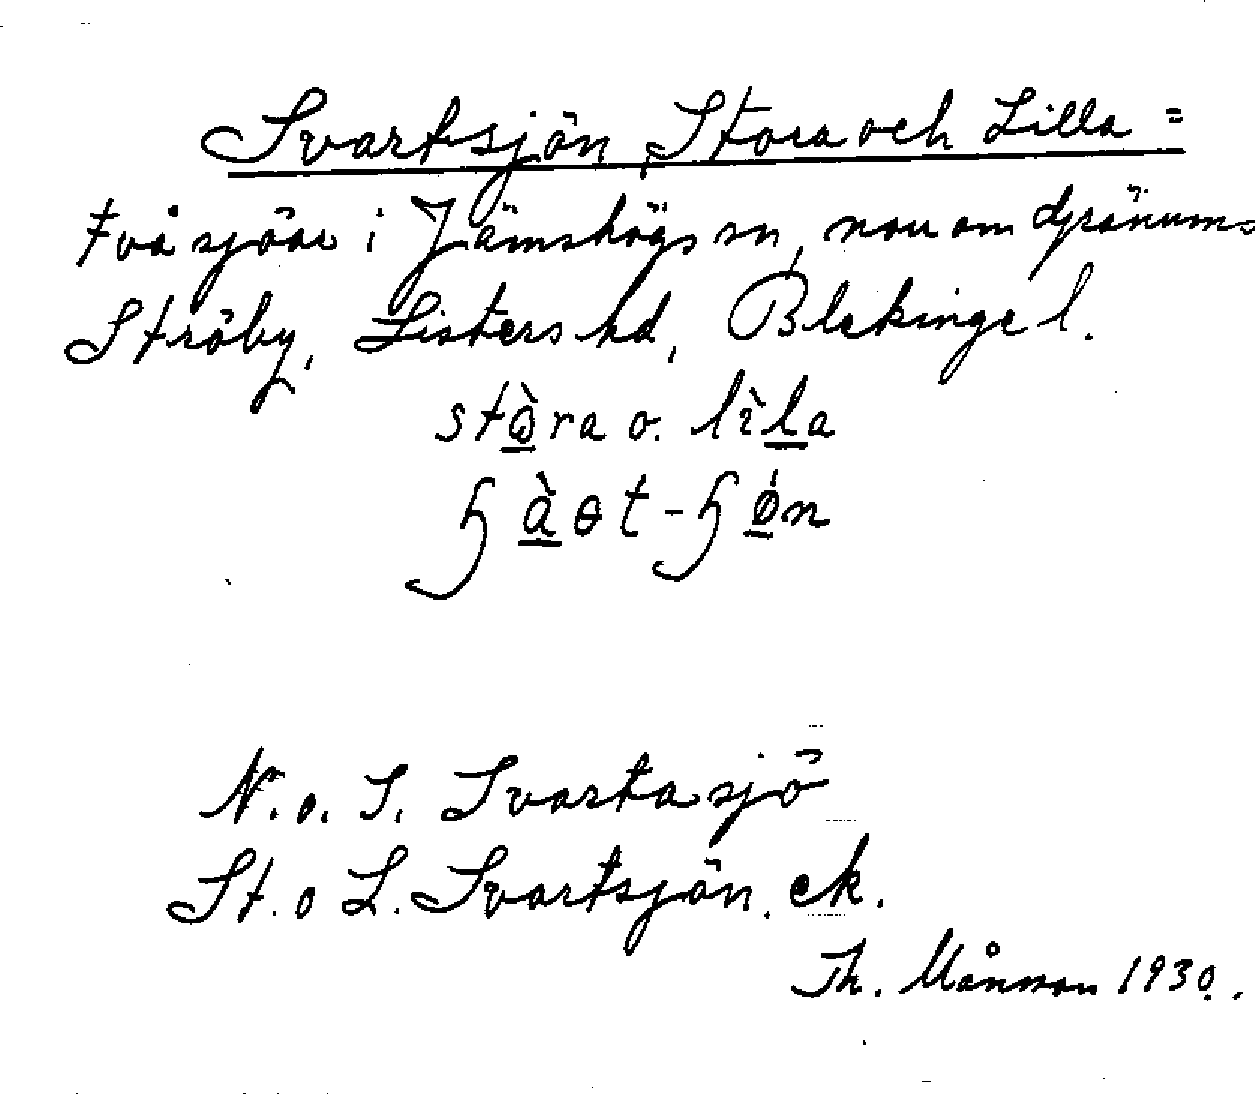 Svartsjön, Stora och Lilla =
två sjöar i Jämshögs sn, norr om Gränum=
Ströby, Listers hd, Blekinge l.
stò̲ra o. lìl̲a
ɧà̲ɵt-ɧǿ̲n
N. o. S. Svarta sjö
St. o L. Svartsjön. ek.
Th. Månsson 1930.